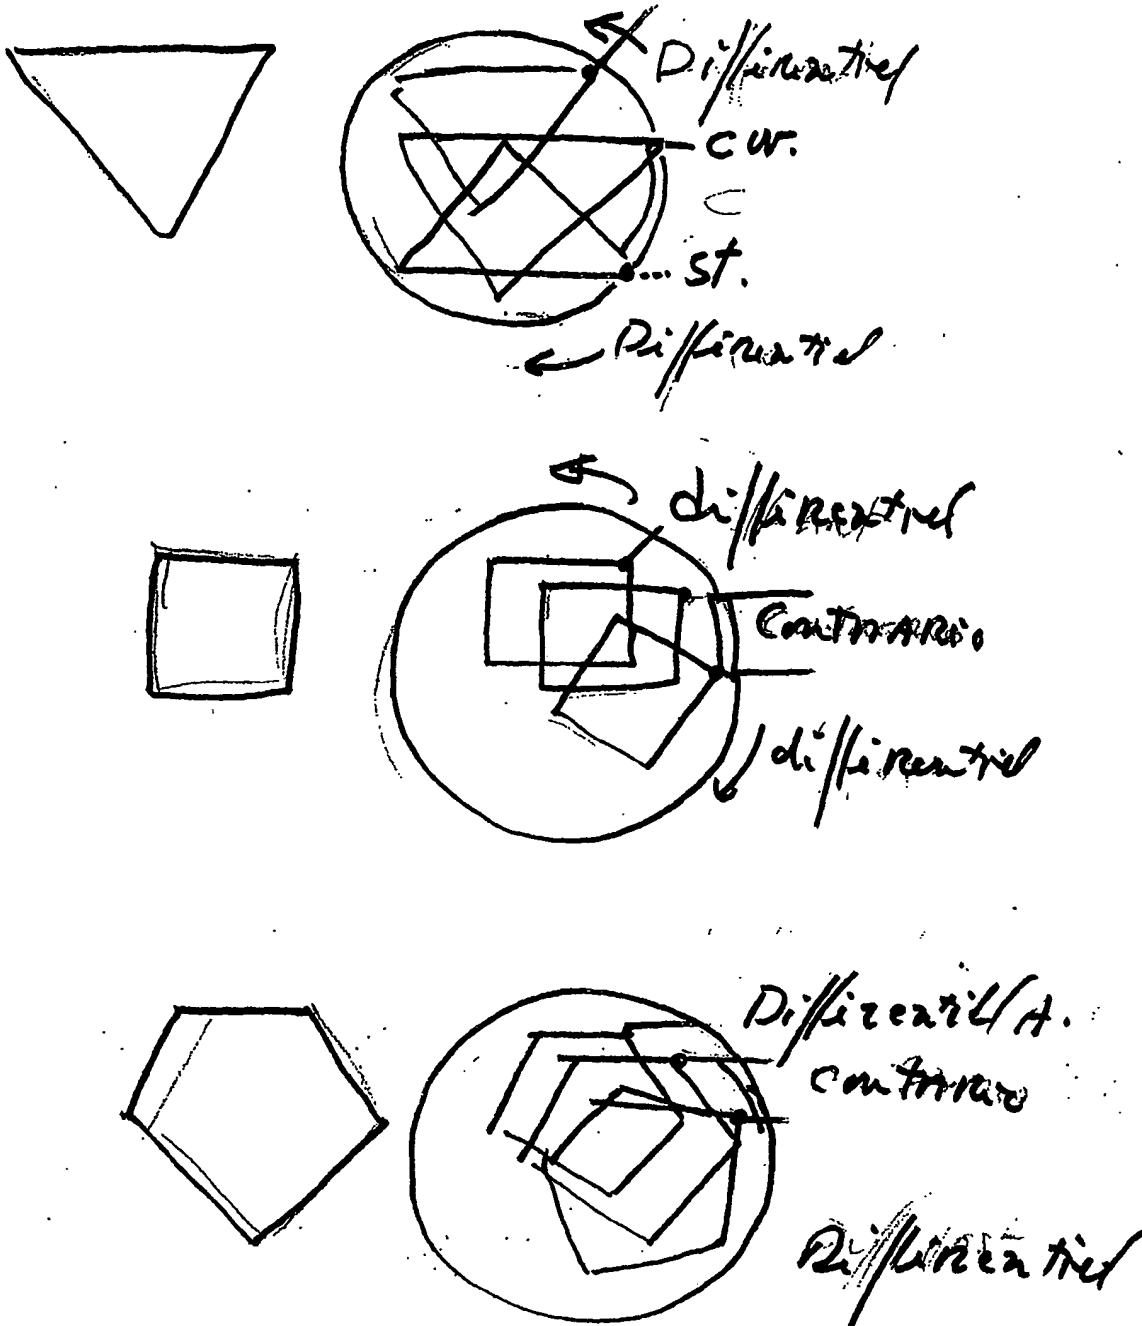 Différentiel
cw.
st.
Différentiel
différentiel
Contraro.
différentiel
Différentiel A.
contraro
Différentiel